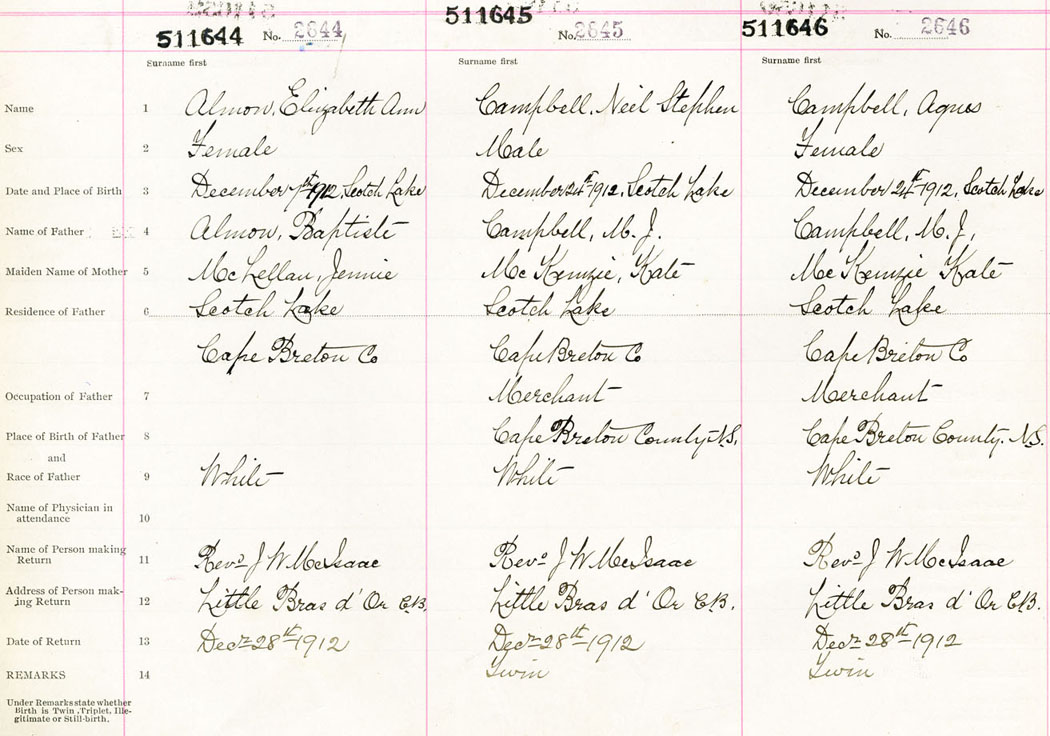 511644 No. 2644 511645 No. 2645 511646 No. 2646
Surname first Surname first Surname first
Name 1 Almon, Elizabeth Ann Campbell, Neil Stephen Campbell, Agnes
Sex 2 Female Male Female
Date and Place of Birth 3 December 7th 1912, Scotch Lake December 24th 1912, Scotch Lake December 24th 1912, Scotch Lake
Name of Father 4 Almon, Baptiste Campbell, M. J. Campbell, M. J.
Maiden Name of Mother 5 McLellan, Jennie McKenzie, Kate McKenzie Kate
Residence of Father 6 Scotch Lake Scotch Lake Scotch Lake
Cape Breton Co Cape Breton Co Cape Breton Co
Occupation of Father 7 Merchant Merchant
Place of Birth of Father 8 Cape Breton County N.S. Cape Breton County. N.S.
and
Race of Father 9 White White White
Name of Physician in
attendance 10
Name of Person making
Return 11 Revd J W McIsaac Revd J W McIsaac Revd J W McIsaac
Address of Person mak-
ing Return 12 Little Bras d'Or C.B. Little Bras d'Or C.B. Little Bras d'Or C.B.
Date of Return 13 Decr 28th 1912 Decr 28th 1912 Decr 28th 1912
REMARKS 14 Twin Twin
Under Remarks state whether
Birth is Twin, Triplet, Ille-
gitimate or Still-birth.